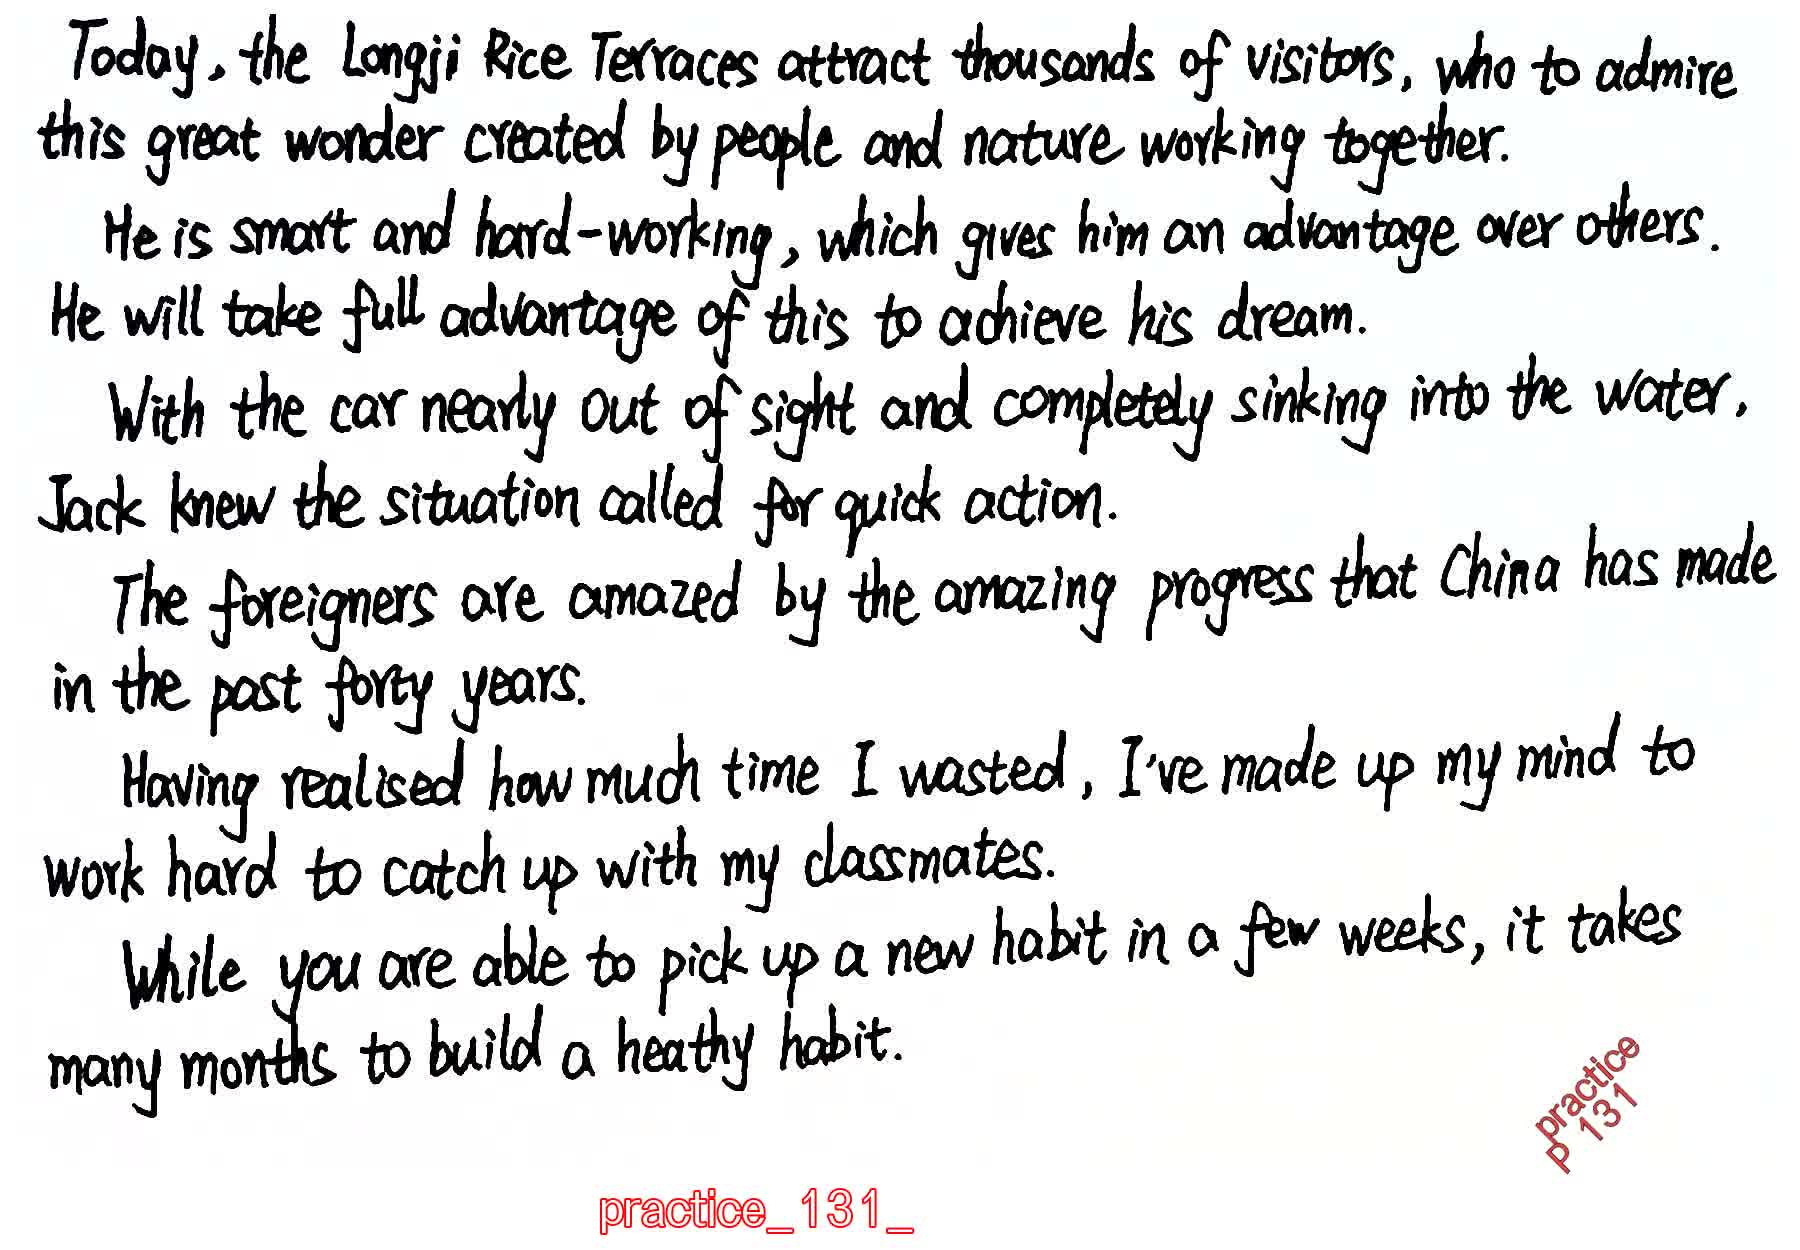 Today, the Longji Rice Terraces attract thousands of visitors, who to admire
this great wonder created by people and nature working together.
He is smart and hard-working, which gives him an advantage over others.
He will take full advantage of this to achieve his dream.
With the car nearly out of sight and completely sinking into the water,
Jack knew the situation called for quick action.
The foreigners are amazed by the amazing progress that China has made
in the past forty years.
Having realised how much time I wasted, I've made up my mind to
work hard to catch up with my classmates.
While you are able to pick up a new habit in a few weeks, it takes
many months to build a heathy habit.
practice
P 131
practice_131_